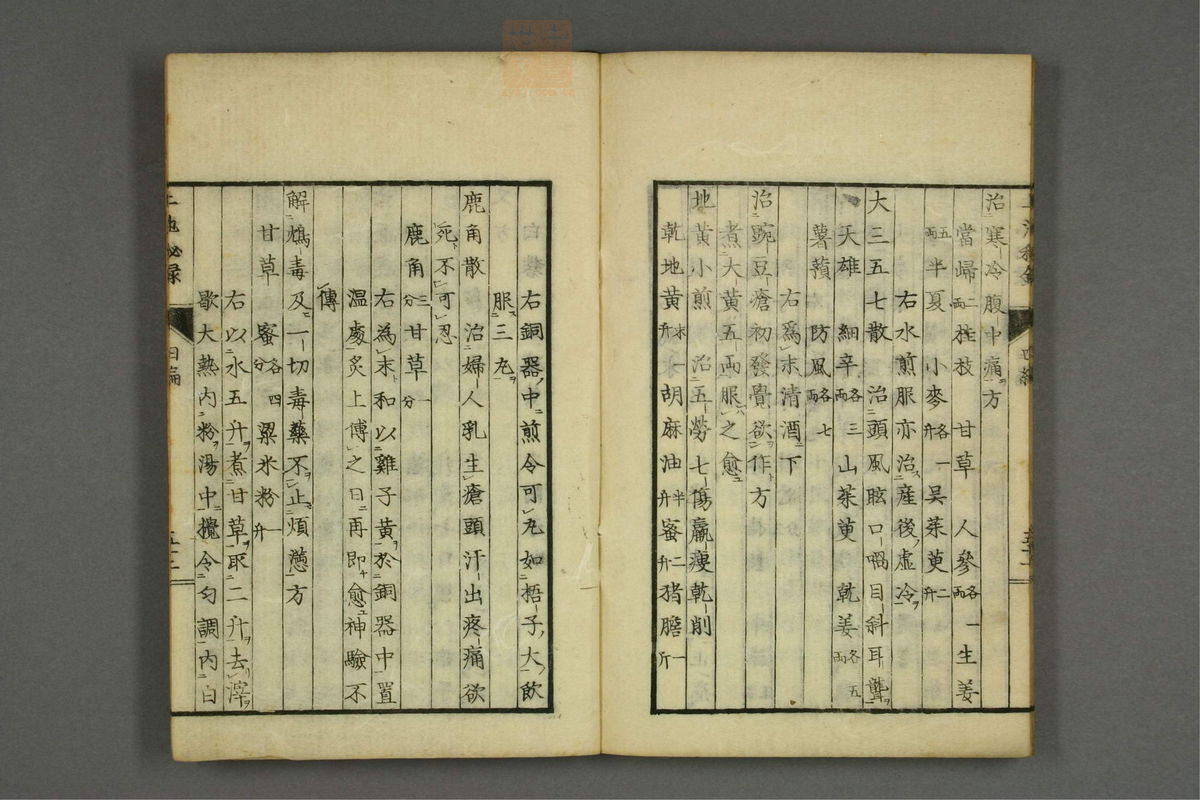 治寒冷腹中痛方
當歸二兩桂枝 甘草 人參各一兩生姜
五兩半夏 小麥各一升吳茱萸二升
右水煎服亦治産後虛冷
大三五七散 治頭風眩口喎目斜耳聾
天雄 細辛各三兩山茱萸 乾姜各五兩
薯蕷 防風各七兩
右爲末清酒下
治豌豆瘡初發覺欲作方
煮大黃五兩服之愈
地黃小煎 治五勞七傷羸瘦乾削
乾地黃末一升胡麻油半升蜜二升猪膽一斤
右銅器中煎令可丸如梧子大飲
服三丸
鹿角散 治婦人乳生瘡頭汁出疼痛欲
死不可忍
鹿角三分甘草一分
右為末和以雞子黃於銅器中置
温處炙上傅之日再即愈神驗不
傳
解鴆毒及一切毒藥不止煩懣方
甘草 蜜各四分粱米粉一升
右以水五升煮甘草取二升去滓
歇大熱內粉湯中攪令匀調內白
四編